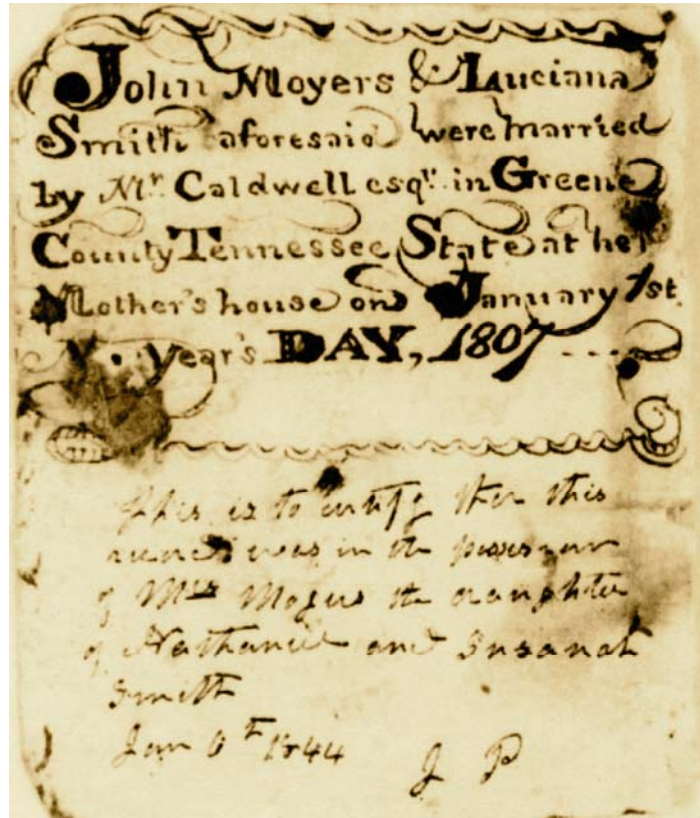 John Moyers & Luciana
Smith aforesaid were married
by Mr. Caldwell esqr. in Greene
County Tennessee State at her
Mother's house on January 1st
year's DAY, 1807
This is to certify that this
was in the possession
of Mrs Moyers the daughter
of Nathaniel and Susanah
Smith
Jan 1844 J P